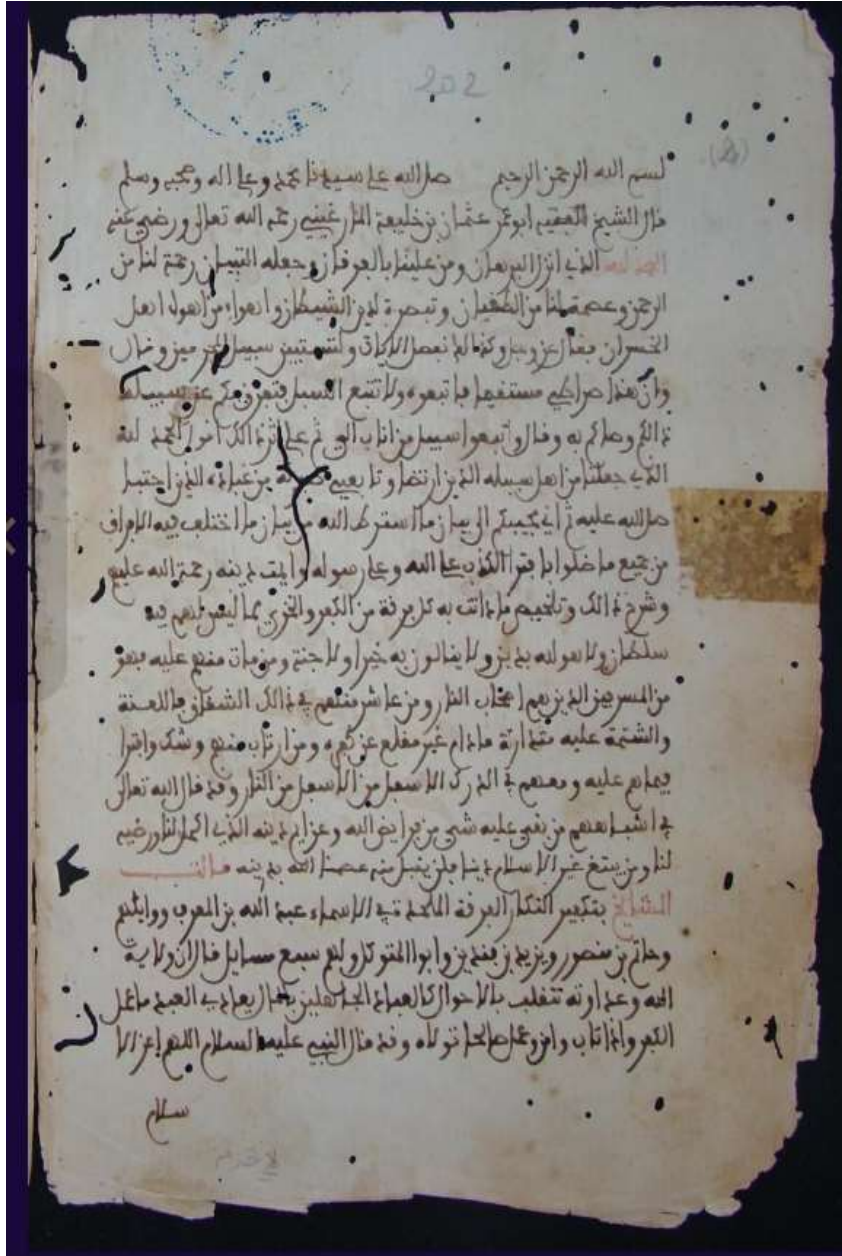 202
بسم الله الرحمن الرحيم صلى الله على سيدنا محمد وعلى اله وصحبه وسلم
قال الشيخ الفقيه ابو عمر عثمان بن خليفة المارغيني رحمه الله تعالى ورضي عنه
الحمد لله الذي انزل البرهان ومن علينا بالفرقان وجعله التبيان رحمة لنا من
الرحمن وعصمة لنا من الطغيان وتبصرة لدين الشيطان واهواء من اهوله اهل
الخسران فقال عز وجل وكذالك نفصل الايات ولتستبين سبيل المجرمين وقال
وان هذا صراطي مستقيما فاتبعوه ولا تتبعوا السبل فتفرق بكم عن سبيله
ذالكم وصاكم به وقال واتبع سبيل من اناب الي ثم على اثر ذالك اقول الحمد لله
الذي جعلنا من اهل سبيله الذين ارتضا وتابعي من عباده الذين اجتبا
صلى الله عليه ثم اني نجيبكم الى بيان ما اسقرط الله من بيان ما اختلف فيه الافراق
من جميع ما ضلوا بافترا الكذب على الله وعلى رسوله وايمت دينه رحمة الله عليهم
وشرح ذالك وتلخيص ما دانت به كل فرقة من الكفر والخزي مما ليس لهم فيه
سلطان ولا هو لله بدين ولا ينالون به خيرا ولا جنة ومن مات منهم عليه فهو
من المسرفين الذين هم اصحاب النار ومن عاشر منهم في ذالك الشقاق فاللعنة
والشتمة عليه متدارئة مادام غير مقلع عن كفره ومن ارتاب منهم وشك وافترا
فيما هم عليه ومعهم في الدرك الاسفل من الاسفل من النار وقد قال الله تعالى
في اشباههم من بقي عليه شي من فرايض الله وعزايم دينه الذي اكمل لنا ورضيه
لنا ومن يبتغ غير الاسلام دينا فلن يقبل منه عصمنا الله بدينه قالت
المشايخ بتكفير النكار الفرقة الملحدة في الاسماء عبد الله بن
وحاتم بن منصور ويزيد بن فندين وابوا المتوكل ولهم سبع مسايل قال ان ولاية
الله وعداوته تتقلب بالاحوال كالعباد الجاهلين قال يعادي العبد ما عمل
الكفر واذا تاب وامن وعمل صالحا تولاه وقد قال النبي عليه السلام اللهم اعز الا
سلام